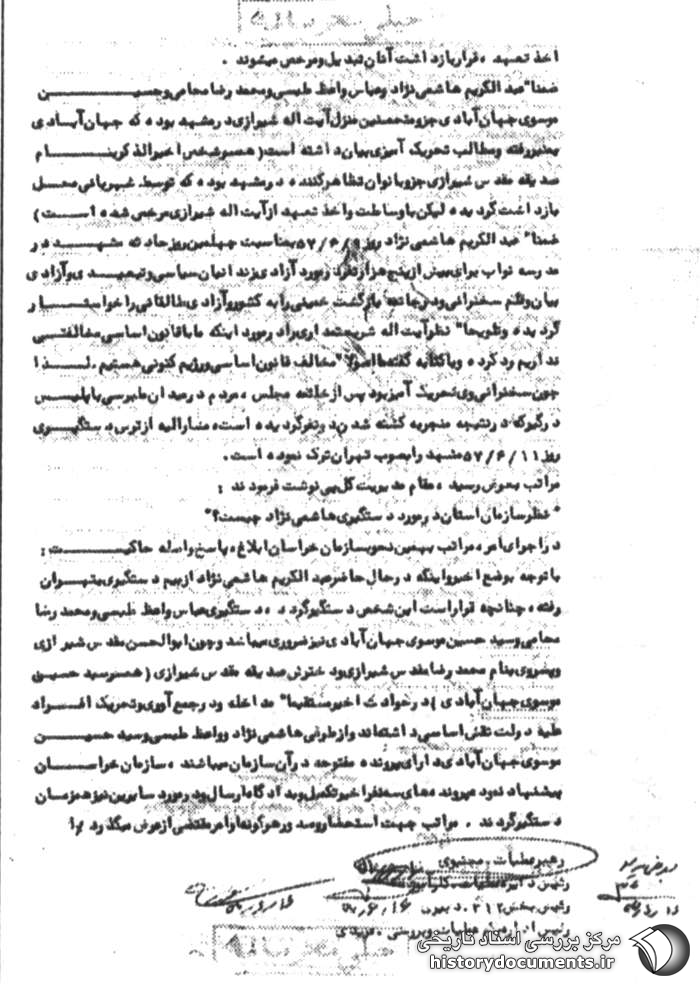 خیلی محرمانه
اخذ تعهد ، قرار بازداشت آنان تبدیل و مرخص میشوند .
ضمنا" عبد الکریم هاشمی نژاد و عباس واعظ طبسی و محمد رضا محامی و حسین
موسوی جهان آبادی جزو متحصنین منزل آیت اله شیرازی در مشهد بوده که جهان آبادی
بمنبر رفته و مطالب تحریک آمیزی بیان داشته است ( همسر شخص اخیرالذکر بنام
صدیقه مقدس شیرازی جزو بانوان تظاهر کننده در مشهد بوده که توسط شهربانی محل
بازداشت گردیده لیکن با وساطت و اخذ تعهد از آیت اله شیرازی مرخص شده است )
ضمنا" عبد الکریم هاشمی نژاد روز ۵۷/۶/۹ بمناسبت چهلمین روز حادثه مشهد در
مدرسه نواب برای بیش از پنج هزار نفر در مورد آزادی زندانیان سیاسی و تبعیدی و آزادی
بیان و قلم سخنرانی و در خاتمه بازگشت خمینی را به کشور و آزادی طالقانی را خواستار
گردیده و تلویحا" نظر آیت اله شریعتمداری را در مورد اینکه ما با قانون اساسی مخالفتی
نداریم رد کرده و با کنایه گفته ما اصولا" مخالف قانون اساسی و رژیم کنونی هستیم . لذا
چون سخنرانی وی تحریک آمیز بود پس از خاتمه مجلس ، مردم در میدان طبرسی با پلیس
درگیر که در نتیجه منجر به کشته شدن دو نفر گردیده است ، مشارالیه از ترس دستگیری
روز ۵۷/۶/۱۱ مشهد را بصوب تهران ترک نموده است .
مراتب بعرض رسید ، مقام مدیریت کل پی نوشت فرمودند :
" نظر سازمان استان در مورد دستگیری هاشمی نژاد چیست ؟"
در اجرای امر ، مراتب بهمین نحو بسازمان خراسان ابلاغ ، پاسخ واصله حاکیست :
با توجه بوضع اخیر و اینکه در حال حاضر عبد الکریم هاشمی نژاد از بیم دستگیری بتهران
رفته ، چنانچه قرار است این شخص دستگیر گردد ، دستگیری عباس واعظ طبسی و محمد رضا
محامی و سید حسین موسوی جهان آبادی نیز ضروری میباشد و چون ابوالحسن مقدس شیرازی
و پسر وی بنام محمد رضا مقدس شیرازی و دخترش صدیقه مقدس شیرازی ( همسر سید حسین
موسوی جهان آبادی ) در حوادث اخیر مستقیما" مداخله و در جمع آوری و تحریک افراد
علیه دولت نقش اساسی داشته اند و از طرفی هاشمی نژاد و واعظ طبسی و سید حسین
موسوی جهان آبادی دارای پرونده مفتوحه در آن سازمان میباشند ، سازمان خراسان
پیشنهاد نموده پرونده های سه نفر اخیر تکمیل و به دادگاه ارسال و در مورد سایرین نیز همزمان
دستگیر گردند . مراتب جهت استحضار و صدور هرگونه اوامر مقتضی از عرض میگذرد .
رهبر عملیات . مجتبوی
رئیس دایره عملیات
رئیس بخش ۳۱۲
رئیس اداره یکم عملیات و بررسی
خیلی محرمانه
مرکز بررسی اسناد تاریخی
historydocuments.ir